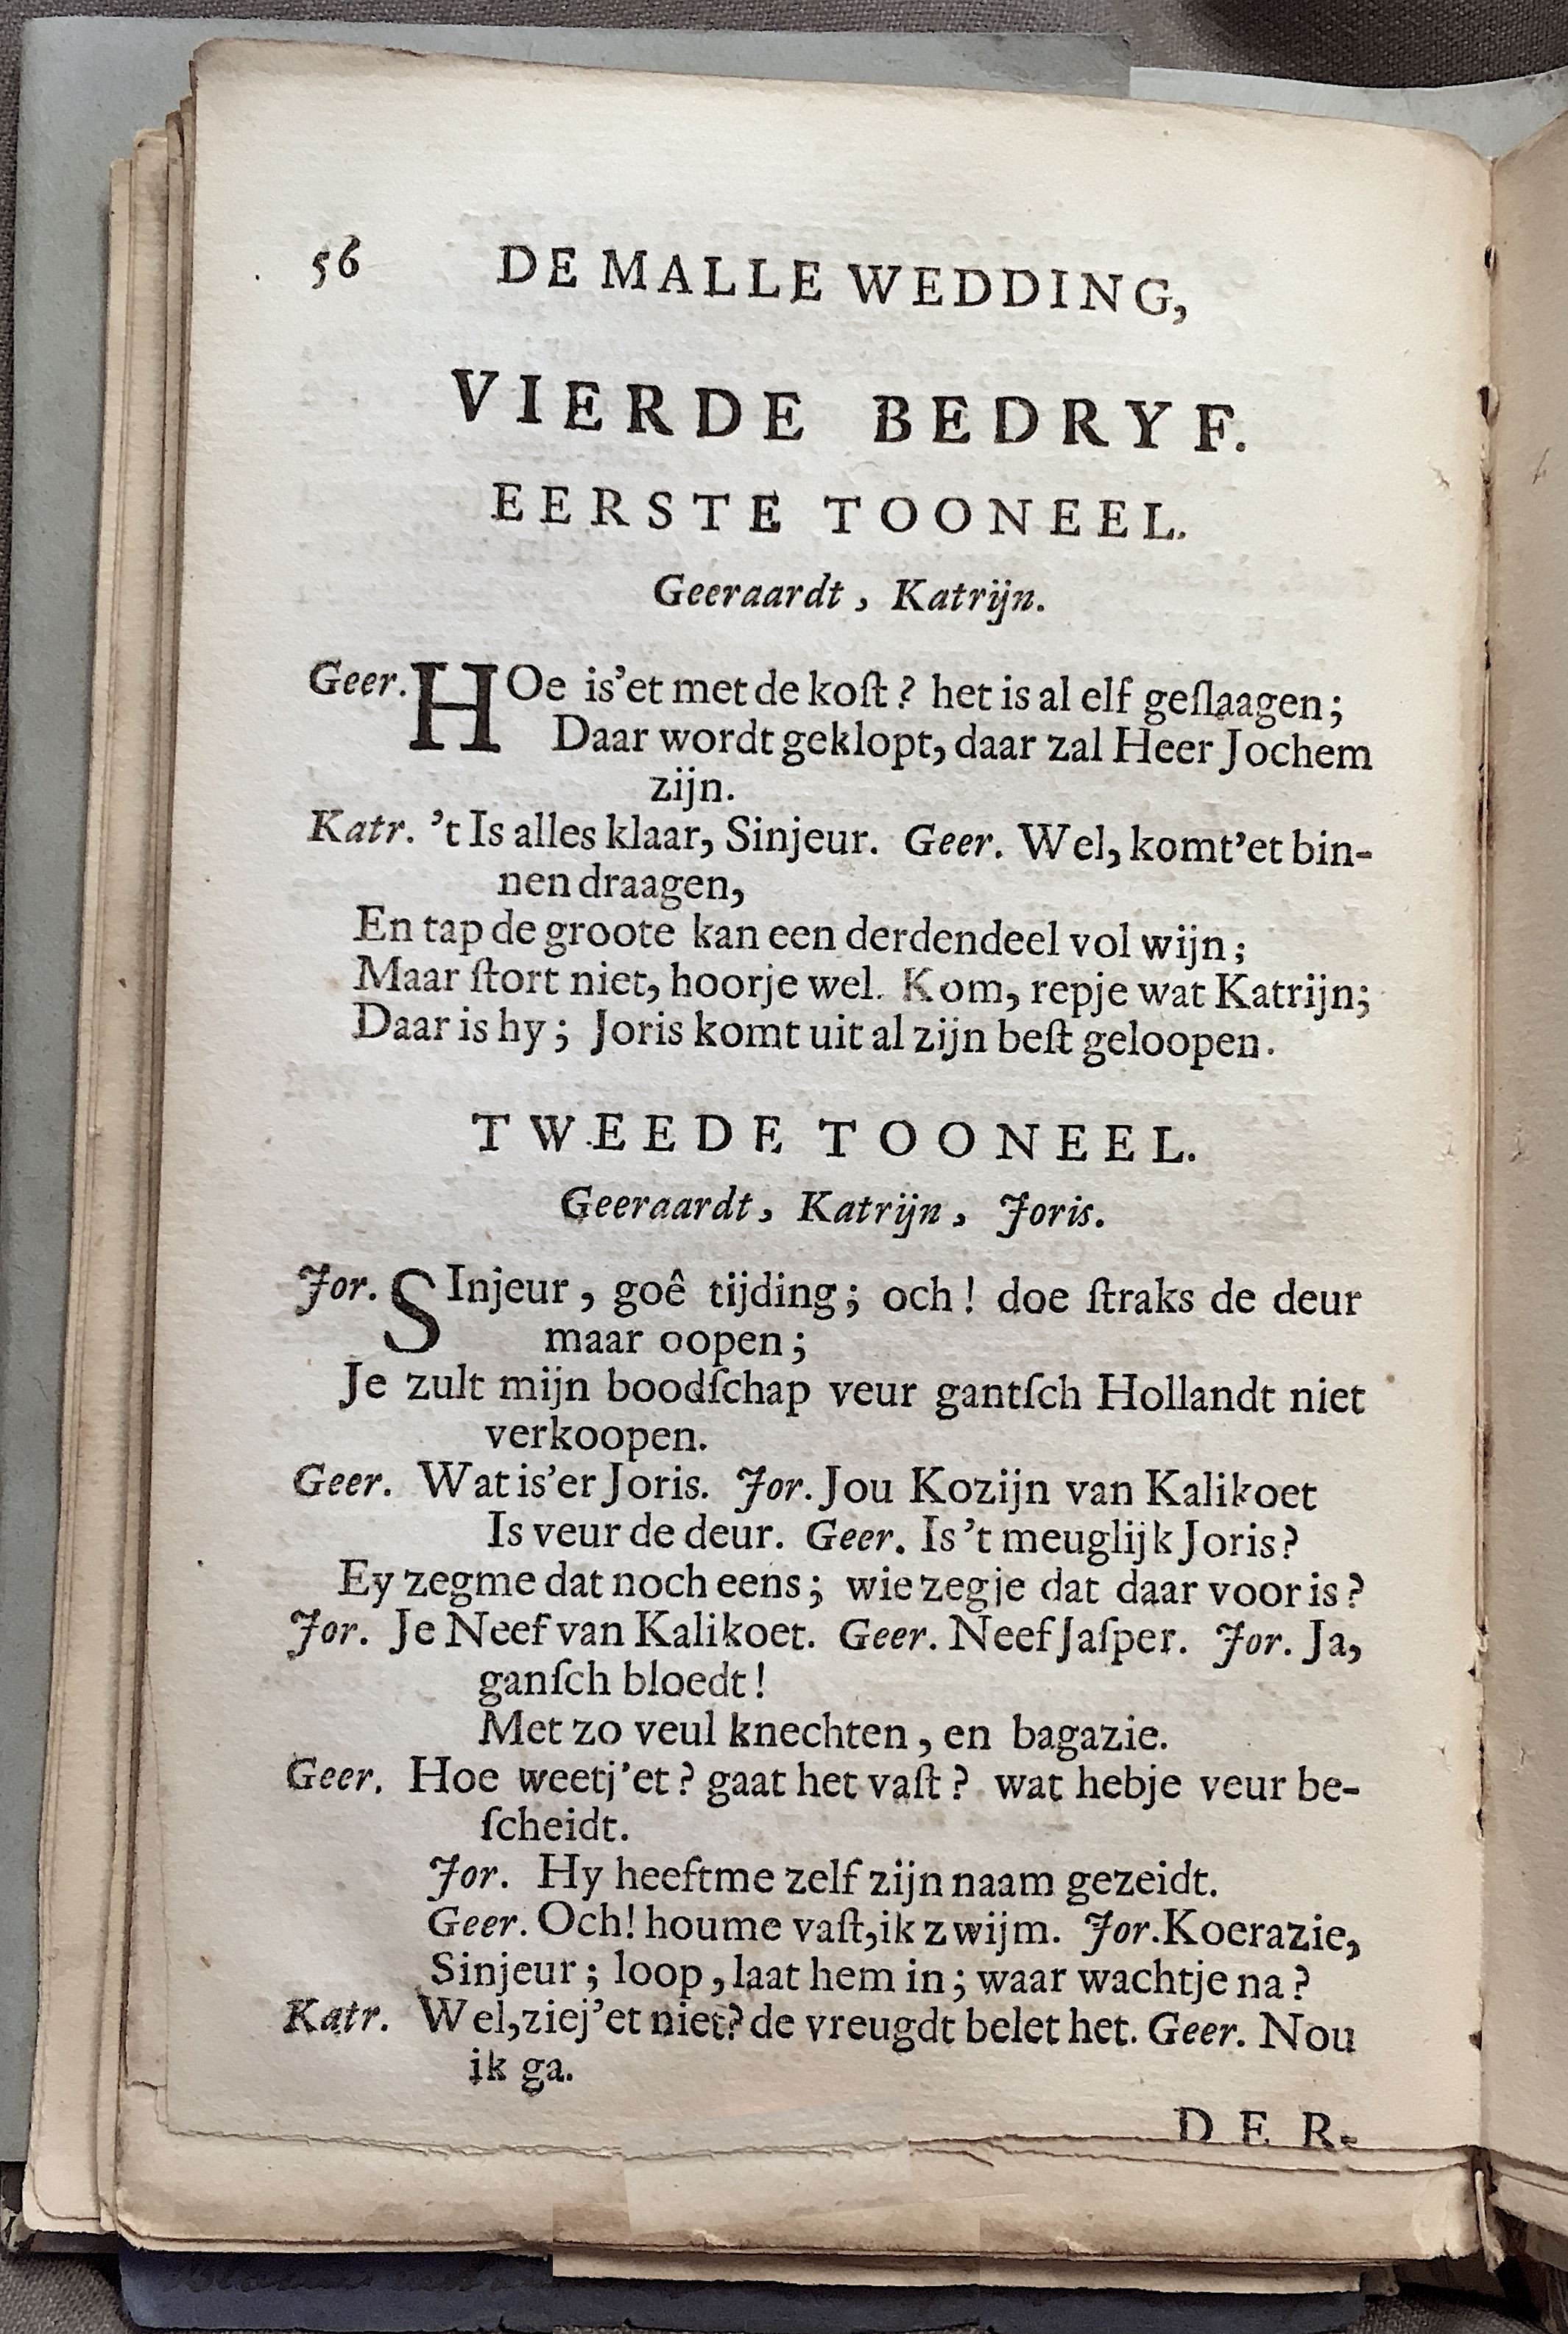 56 DE MALLE WEDDING,
VIERDE BEDRYF.
EERSTE TOONEEL.
Geeraardt, Katrijn.
Geer. HOe is'et met de koſt? het is al elf geſlaagen;
Daar wordt geklopt, daar zal Heer Jochem
zijn.
Katr. 't Is alles klaar, Sinjeur. Geer. Wel, komt'et bin-
nen draagen,
En tap de groote kan een derdendeel vol wijn;
Maar ſtort niet, hoorje wel. Kom, repje wat Katrijn;
Daar is hy; Joris komt uit al zijn beſt geloopen.
TWEEDE TOONEEL.
Geeraardt, Katrijn, Joris.
Jor. SInjeur, goê tijding; och! doe ſtraks de deur
maar oopen;
Je zult mijn boodſchap veur gantſch Hollandt niet
verkoopen.
Geer. Wat is'er Joris. Jor. Jou Kozijn van Kalikoet
Is veur de deur. Geer. Is 't meuglijk Joris?
Ey zegme dat noch eens; wie zegje dat daar voor is?
Jor. Je Neef van Kalikoet. Geer. Neef Jaſper. Jor. Ja,
ganſch bloedt!
Met zo veul knechten, en bagazie.
Geer. Hoe weetj'et? gaat het vaſt? wat hebje veur be-
ſcheidt.
Jor. Hy heeftme zelf zijn naam gezeidt.
Geer. Och! houme vaſt, ik zwijm. Jor. Koerazie,
Sinjeur; loop, laat hem in; waar wachtje na?
Katr. Wel, ziej'et niet? de vreugdt belet het. Geer. Nou
ik ga.
DER-